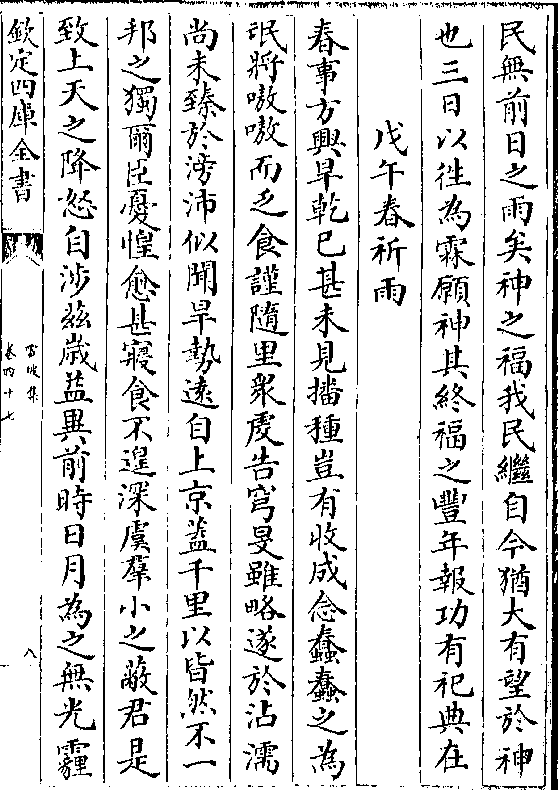 民無前日之雨矣神之福我民繼自今猶大有望於神
也三日以徃為霖願神其終福之豐年報功有祀典在
戊午春祈雨
春事方興旱乾已甚未見播種豈有收成念蠢蠢之為
氓將嗷嗷而乏食謹隨里衆虔告穹旻雖略遂於沾濡
尚未臻於滂沛似聞旱勢逺自上京葢千里以皆然不一
邦之獨爾臣憂惶愈甚寢食不遑深虞羣小之蔽君是
致上天之降怒自涉兹歲葢異前時日月為之無光霾
欽定四庫全書
雪坡集
卷四十七
八